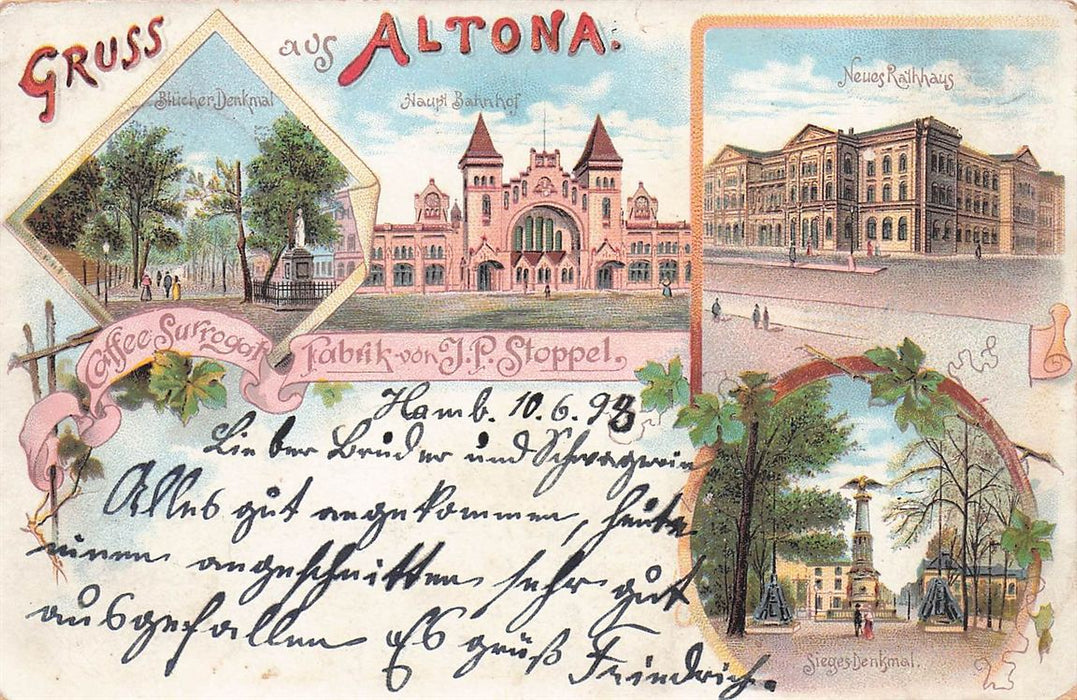 GRUSS aus ALTONA.
Blücher Denkmal
Haupt Bahnhof
Neues Rathhaus
Caffee-Surrogat Fabrik von J. P. Stoppel.
Hamb. 10.6.98
Lieber Bruder und Schwägerin
Alles gut angekommen, heute
einen angeschnitten sehr gut
ausgefallen Es grüß
Friedrich.
Sieges-Denkmal.